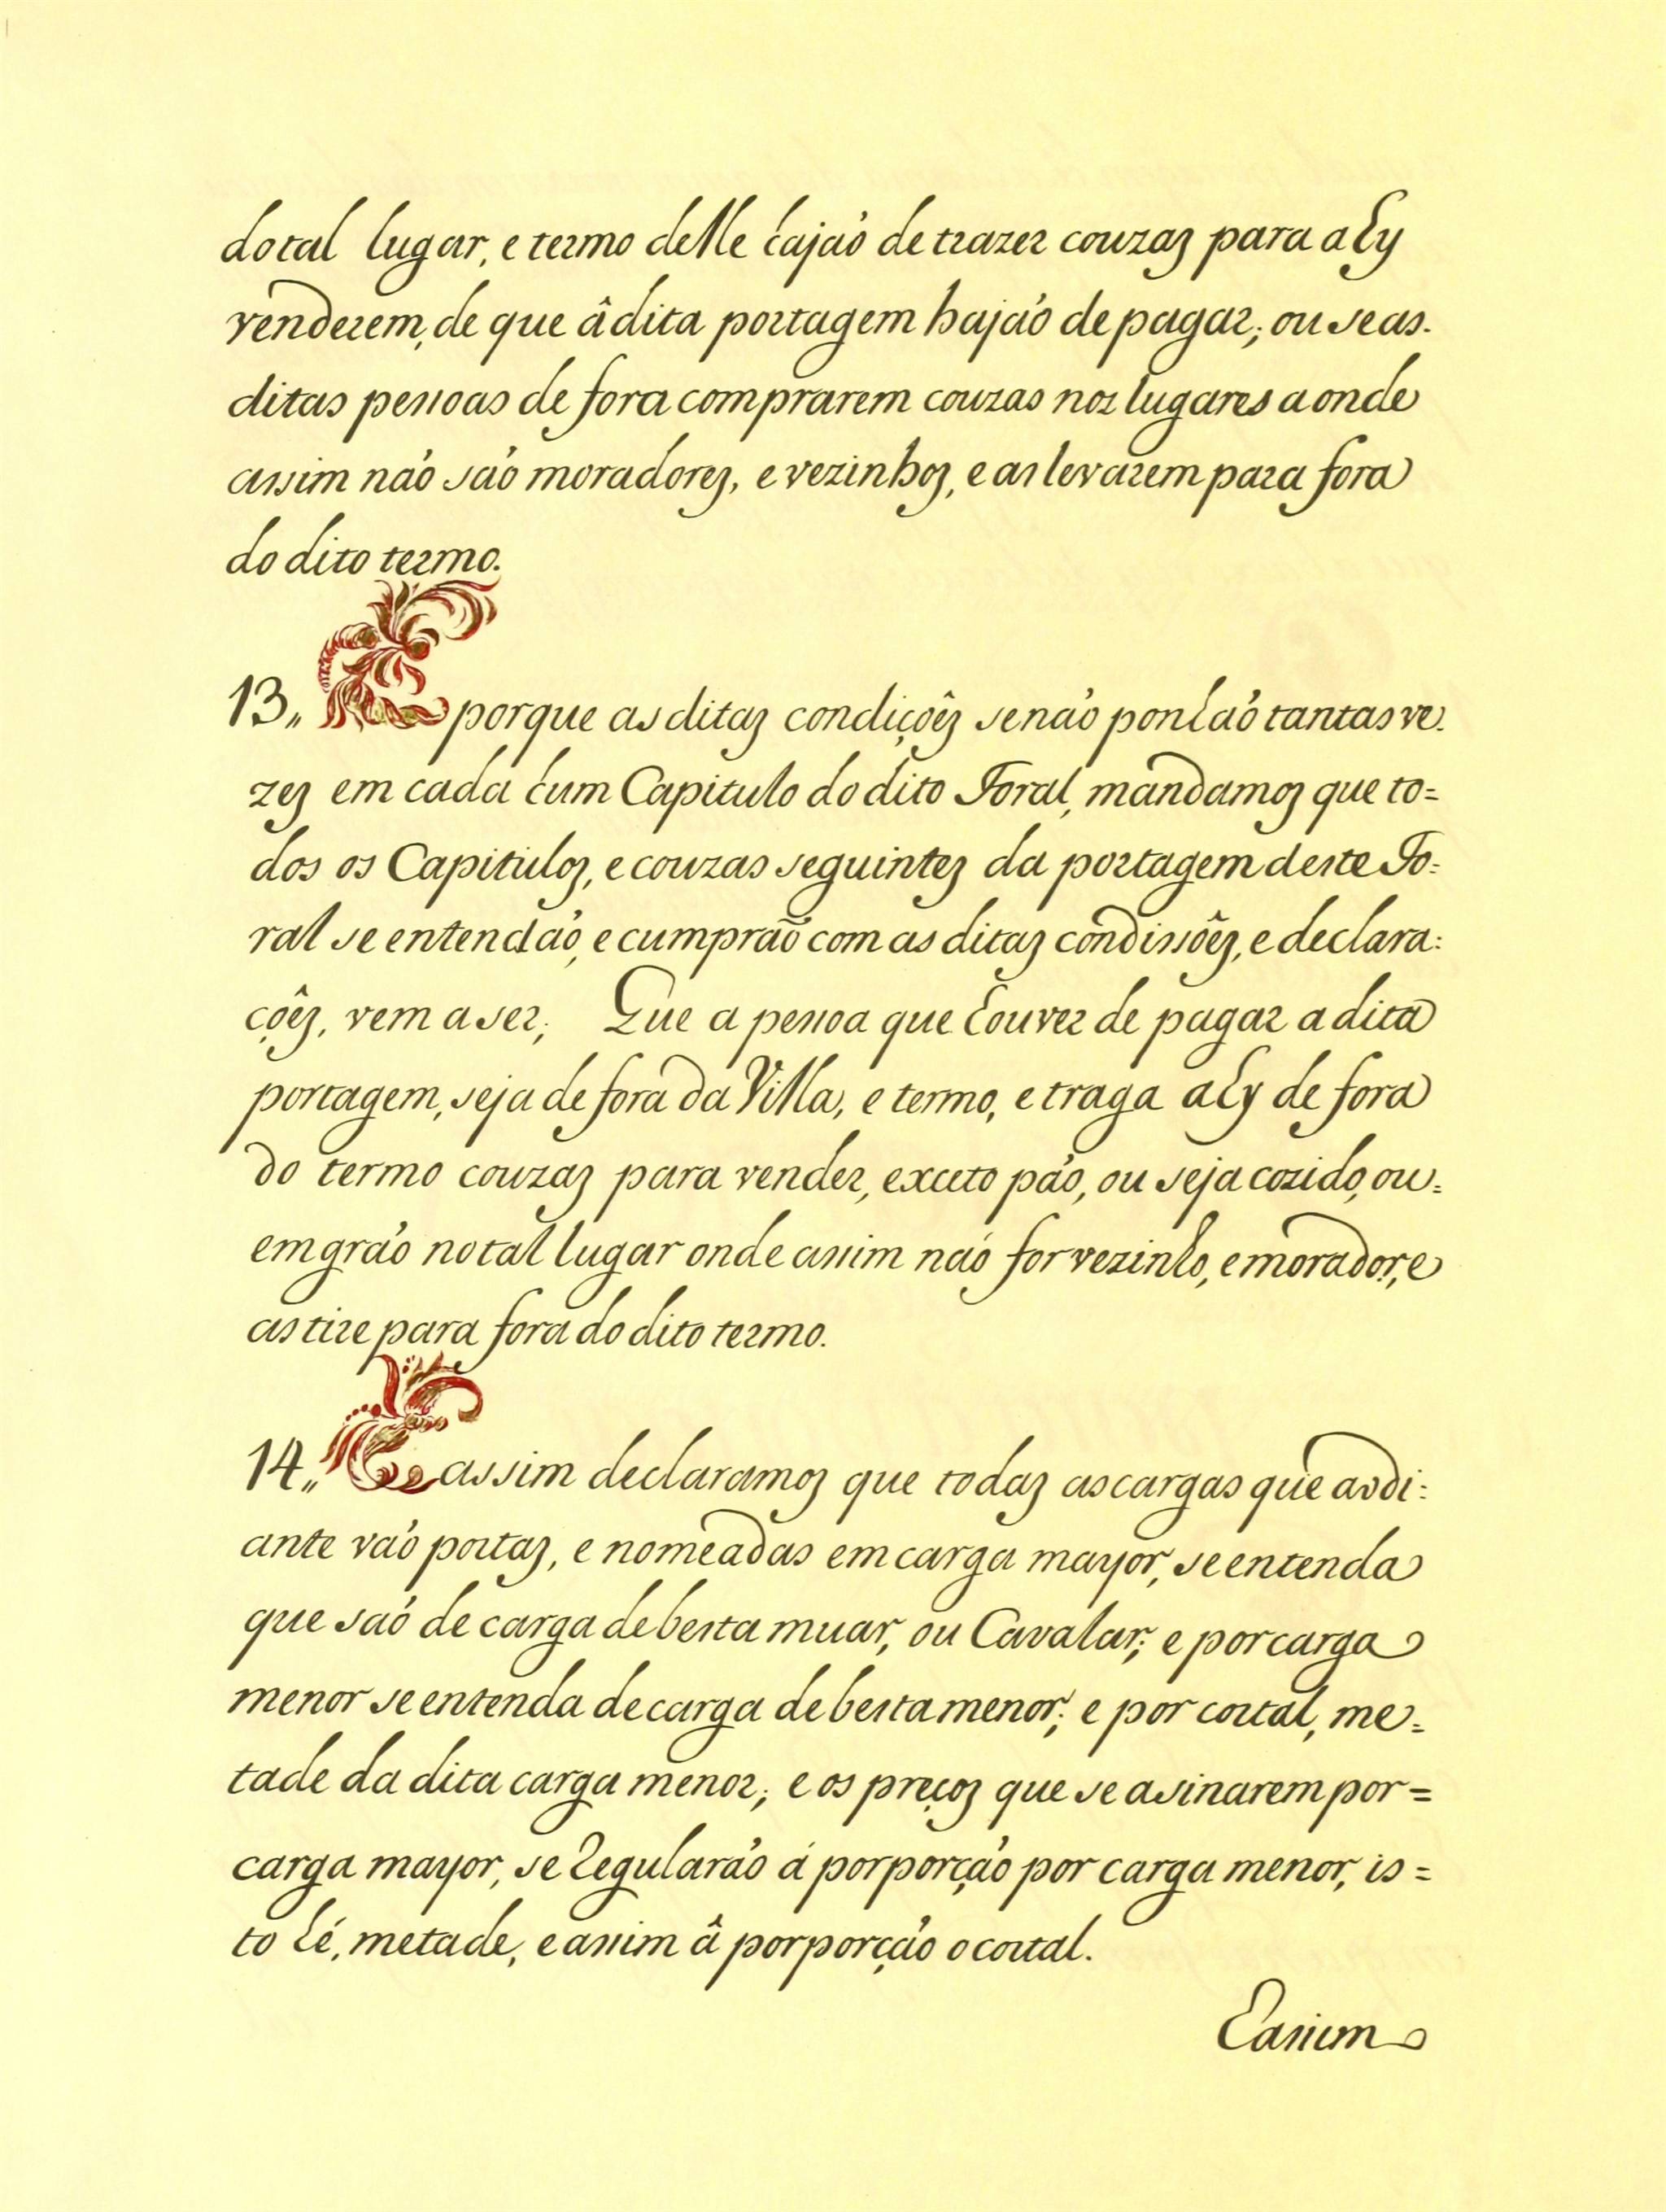 do tal lugar, e termo delle hajaõ de trazer couzas para ahy
venderem, de que â dita portagem hajaõ de pagar; ou se as
ditas pessoas de fora comprarem couzas nos lugares aonde
assim naõ saõ moradores, e vezinhos, e as levarem para fora
do dito termo.
13,, E porque as ditas condiçoês se naõ ponhaõ tantas ve-
zes em cada hum Capitulo do dito Foral, mandamos que to=
dos os Capitulos, e couzas seguintes da portagem deste Fo=
ral se entendaõ, e cumpraõ com as ditas condissoês, e declara=
çoês, vem a ser; Que a pessoa que houver de pagar a dita
portagem, seja de fora da Villa, e termo, e traga ahy de fora
do termo couzas para vender, exceto paõ, ou seja cozido, ou=
em graõ no tal lugar onde assim naõ for vezinho, e morador, e
as tire para fora do dito termo.
14,, E assim declaramos que todas as cargas que aodi=
ante vaõ postas, e nomeadas em carga mayor, se entenda
que saõ de carga de besta muar, ou Cavalar; e por carga
menor se entenda de carga de besta menor; e por costal, me=
tade da dita carga menor; e os preços que se asinarem por=
carga mayor, se regularaõ á porporçaõ por carga menor, is=
to hé, metade, e assim â porporçaõ o costal.
E assim